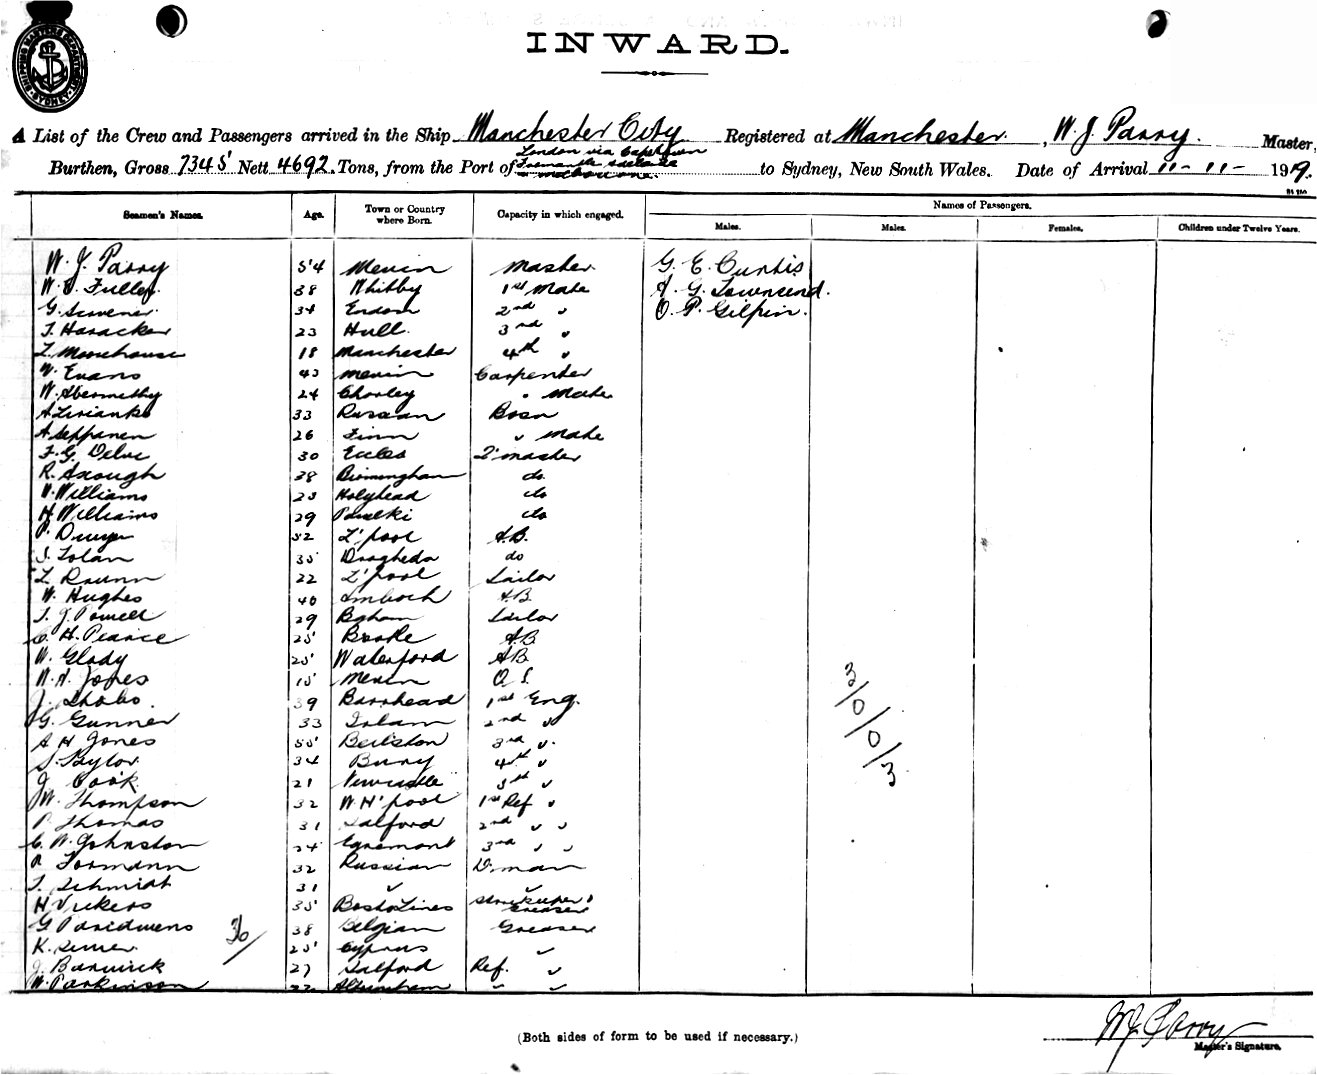 SHIPPING MASTERS DEPARTMENT SYDNEY
INWARD.
A List of the Crew and Passengers arrived in the Ship Manchester City Registered at Manchester, W. J. Parry. Master,
London via Capetown
Burthen, Gross 7345 Nett 4692 Tons, from the Port of Fremantle Adelaide to Sydney, New South Wales. Date of Arrival 11-11-1919.
Melbourne.
Names of Passengers.
Seamen's Names. Age. Town or Country where Born. Capacity in which engaged. Males. Males. Females. Children under Twelve Years.
W. J. Parry 54 Master. G. E. Curtis
W. Fuller 38 Whitby 1st Mate A. G. Townsend.
G. 34 2nd " O. P. Gilpin.
23 Hull. 3rd "
18 Manchester 4th "
W. Evans 43 Carpenter
W. Abernethy 24 Chorley " Mate
A 33 Russian Bosn
A Seppanen 26 Finn " Mate
F. G. 30 Eccles Q'master
R. 38 Birmingham do.
W. Williams 23 Holyhead do
H Williams 29 do
P. 52 L'pool A.B.
35 Drogheda do
22 L'pool Sailor
W. Hughes 40 A.B.
T. J. Powell 29 Bgham Sailor
C. H. Pearce 25 A.B
W. 25 Waterford A.B
W. H. Jones O. S.
J. 39 Barrhead 1st Eng.
G. Gunner 33 Irlam 2nd "
A H Jones 55 3rd ".
34 Bury 4th "
J. Cook 21 Newcastle 5th "
W. Thompson 32 W. H'pool 1st Ref "
P. Thomas 31 Salford 2nd " "
C. W. Johnston 24 Egremont 3rd " "
32 Russian D.man
Schmidt 31 " "
H Vickers 35 Storekeeper & Greaser
G 38 Belgian Greaser
K. 25 Cyprus "
J. Barwick 27 Salford Ref. "
W. Parkinson 22 Altrincham " "
36/
3/0/0/3
(Both sides of form to be used if necessary.)
W J Parry
Master's Signature.